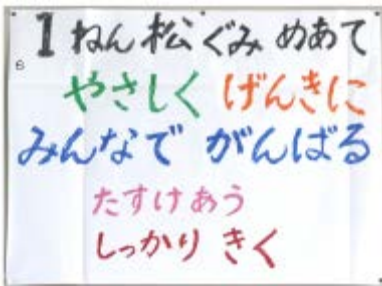 1ねん松ぐみ めあて
やさしく げんきに
みんなで がんばる
たすけあう
しっかり きく